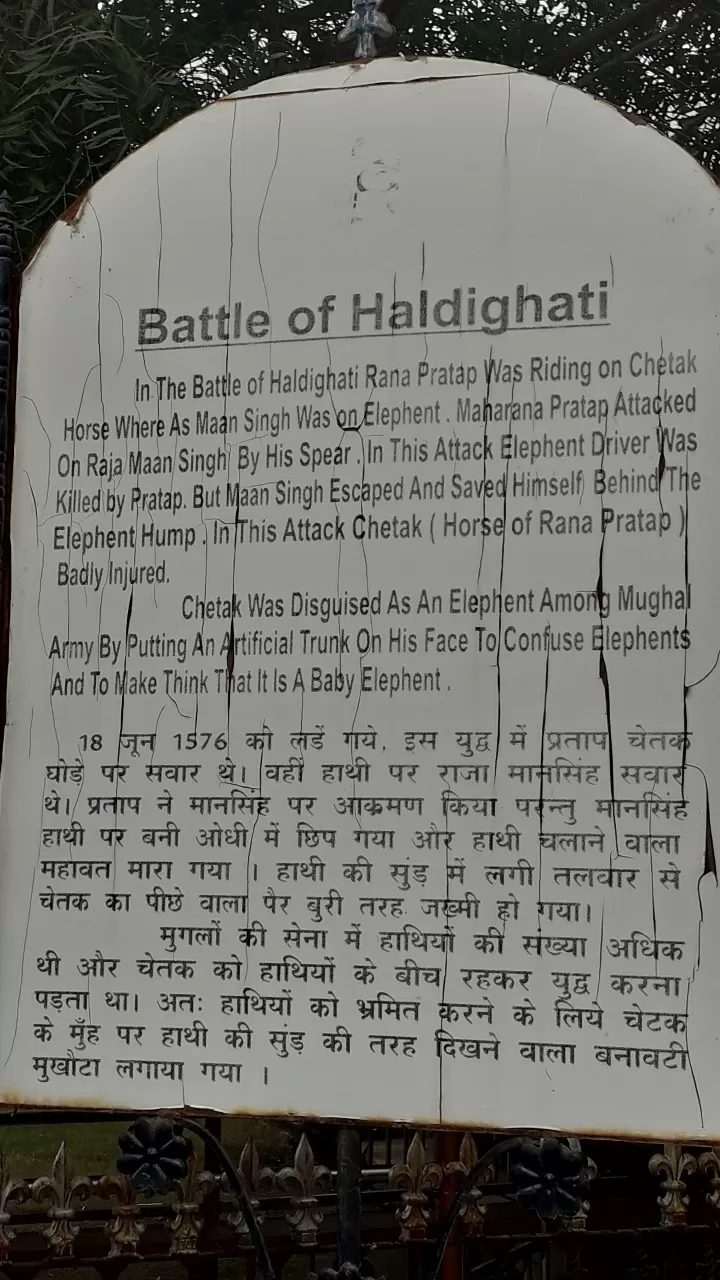 Battle of Haldighati
In The Battle of Haldighati Rana Pratap Was Riding on Chetak
Horse Where As Maan Singh Was on Elephent . Maharana Pratap Attacked
On Raja Maan Singh By His Spear . In This Attack Elephent Driver Was
Killed by Pratap. But Maan Singh Escaped And Saved Himself Behind The
Elephent Hump . In This Attack Chetak ( Horse of Rana Pratap )
Badly Injured.
Chetak Was Disguised As An Elephent Among Mughal
Army By Putting An Artificial Trunk On His Face To Confuse Elephents
And To Make Think That It Is A Baby Elephent .
18 जून 1576 को लडें गये, इस युद्व में प्रताप चेतक
घोड़े पर सवार थे। वहीं हाथी पर राजा मानसिंह सवार
थे। प्रताप ने मानसिंह पर आक्रमण किया परन्तु मानसिंह
हाथी पर बनी ओधी में छिप गया और हाथी चलाने वाला
महावत मारा गया । हाथी की सुंड़ में लगी तलवार से
चेतक का पीछे वाला पैर बुरी तरह जख्मी हो गया।
मुगलों की सेना में हाथियों की संख्या अधिक
थी और चेतक को हाथियों के बीच रहकर युद्व करना
पड़ता था। अतः हाथियों को भ्रमित करने के लिये चेटक
के मुँह पर हाथी की सुंड़ की तरह दिखने वाला बनावटी
मुखौटा लगाया गया ।